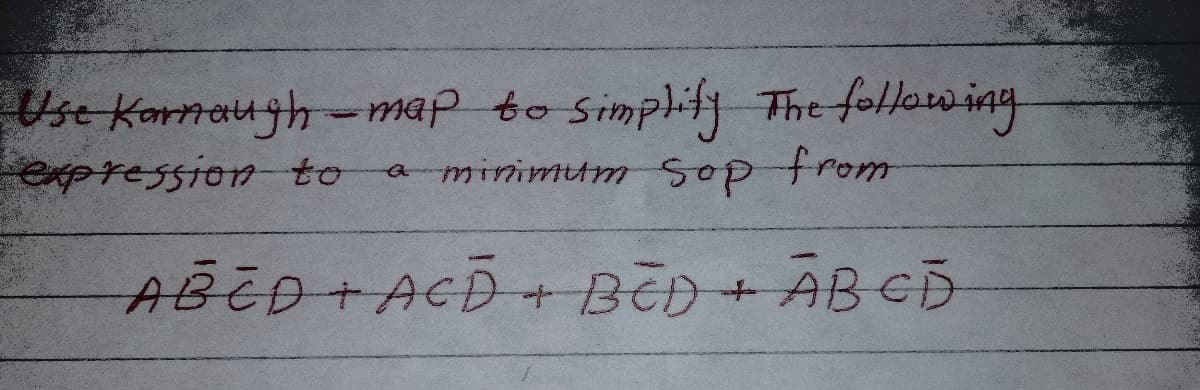 Use Karnaugh - map to simplify The following
expression to a minimum Sop from
AB̄C̄D + ACD̄ + BC̄D + ĀBCD̄